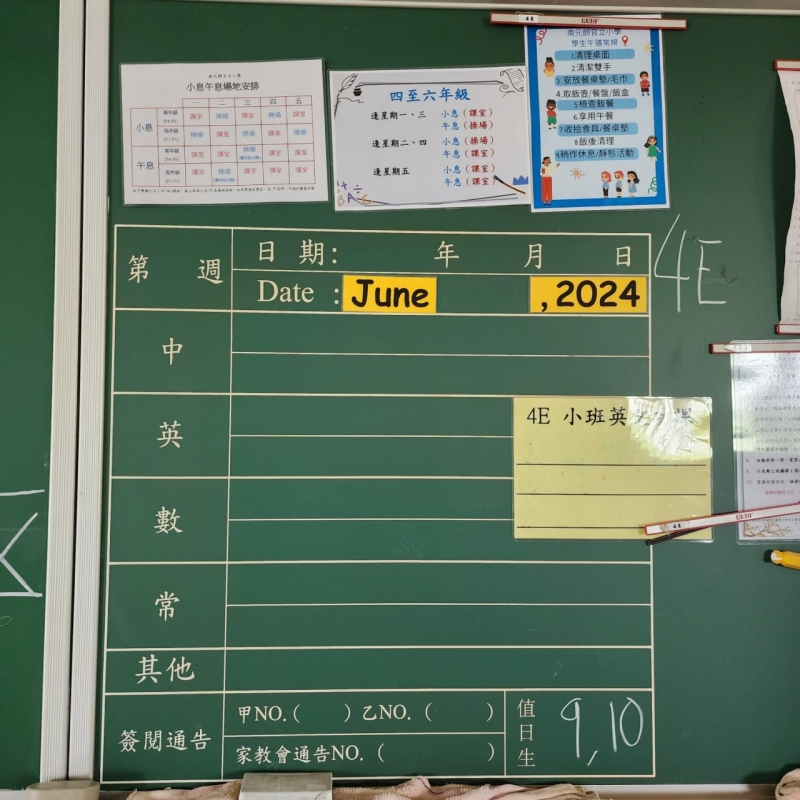 南元朗官立小學
小息午息場地安排
一 二 三 四 五
小息
高年級
課室 操場 課室 操場 課室
低年級
操場 課室 操場 課室 操場
午息
高年級
課室 課室 操場 課室 課室
低年級
課室 操場 課室 課室 課室
四至六年級
逢星期一、三 小息（課室）
午息（操場）
逢星期二、四 小息（操場）
午息（課室）
逢星期五 小息（課室）
午息（課室）
4E
南元朗官立小學
學生午膳常規
1清理桌面
2清潔雙手
3.安放餐桌墊/毛巾
4.取飯壺/餐盤/飯盒
5檢查飯餐
6.享用午餐
7收拾食具/餐桌墊
8飯後清理
9稍作休息/靜態活動
第 週
日 期： 年 月 日
Date : June , 2024
4E
中
英
4E 小班英
數
4E
常
其他
簽閱通告
甲NO.( ) 乙NO. ( )
家教會通告NO. ( )
值日生
9, 10